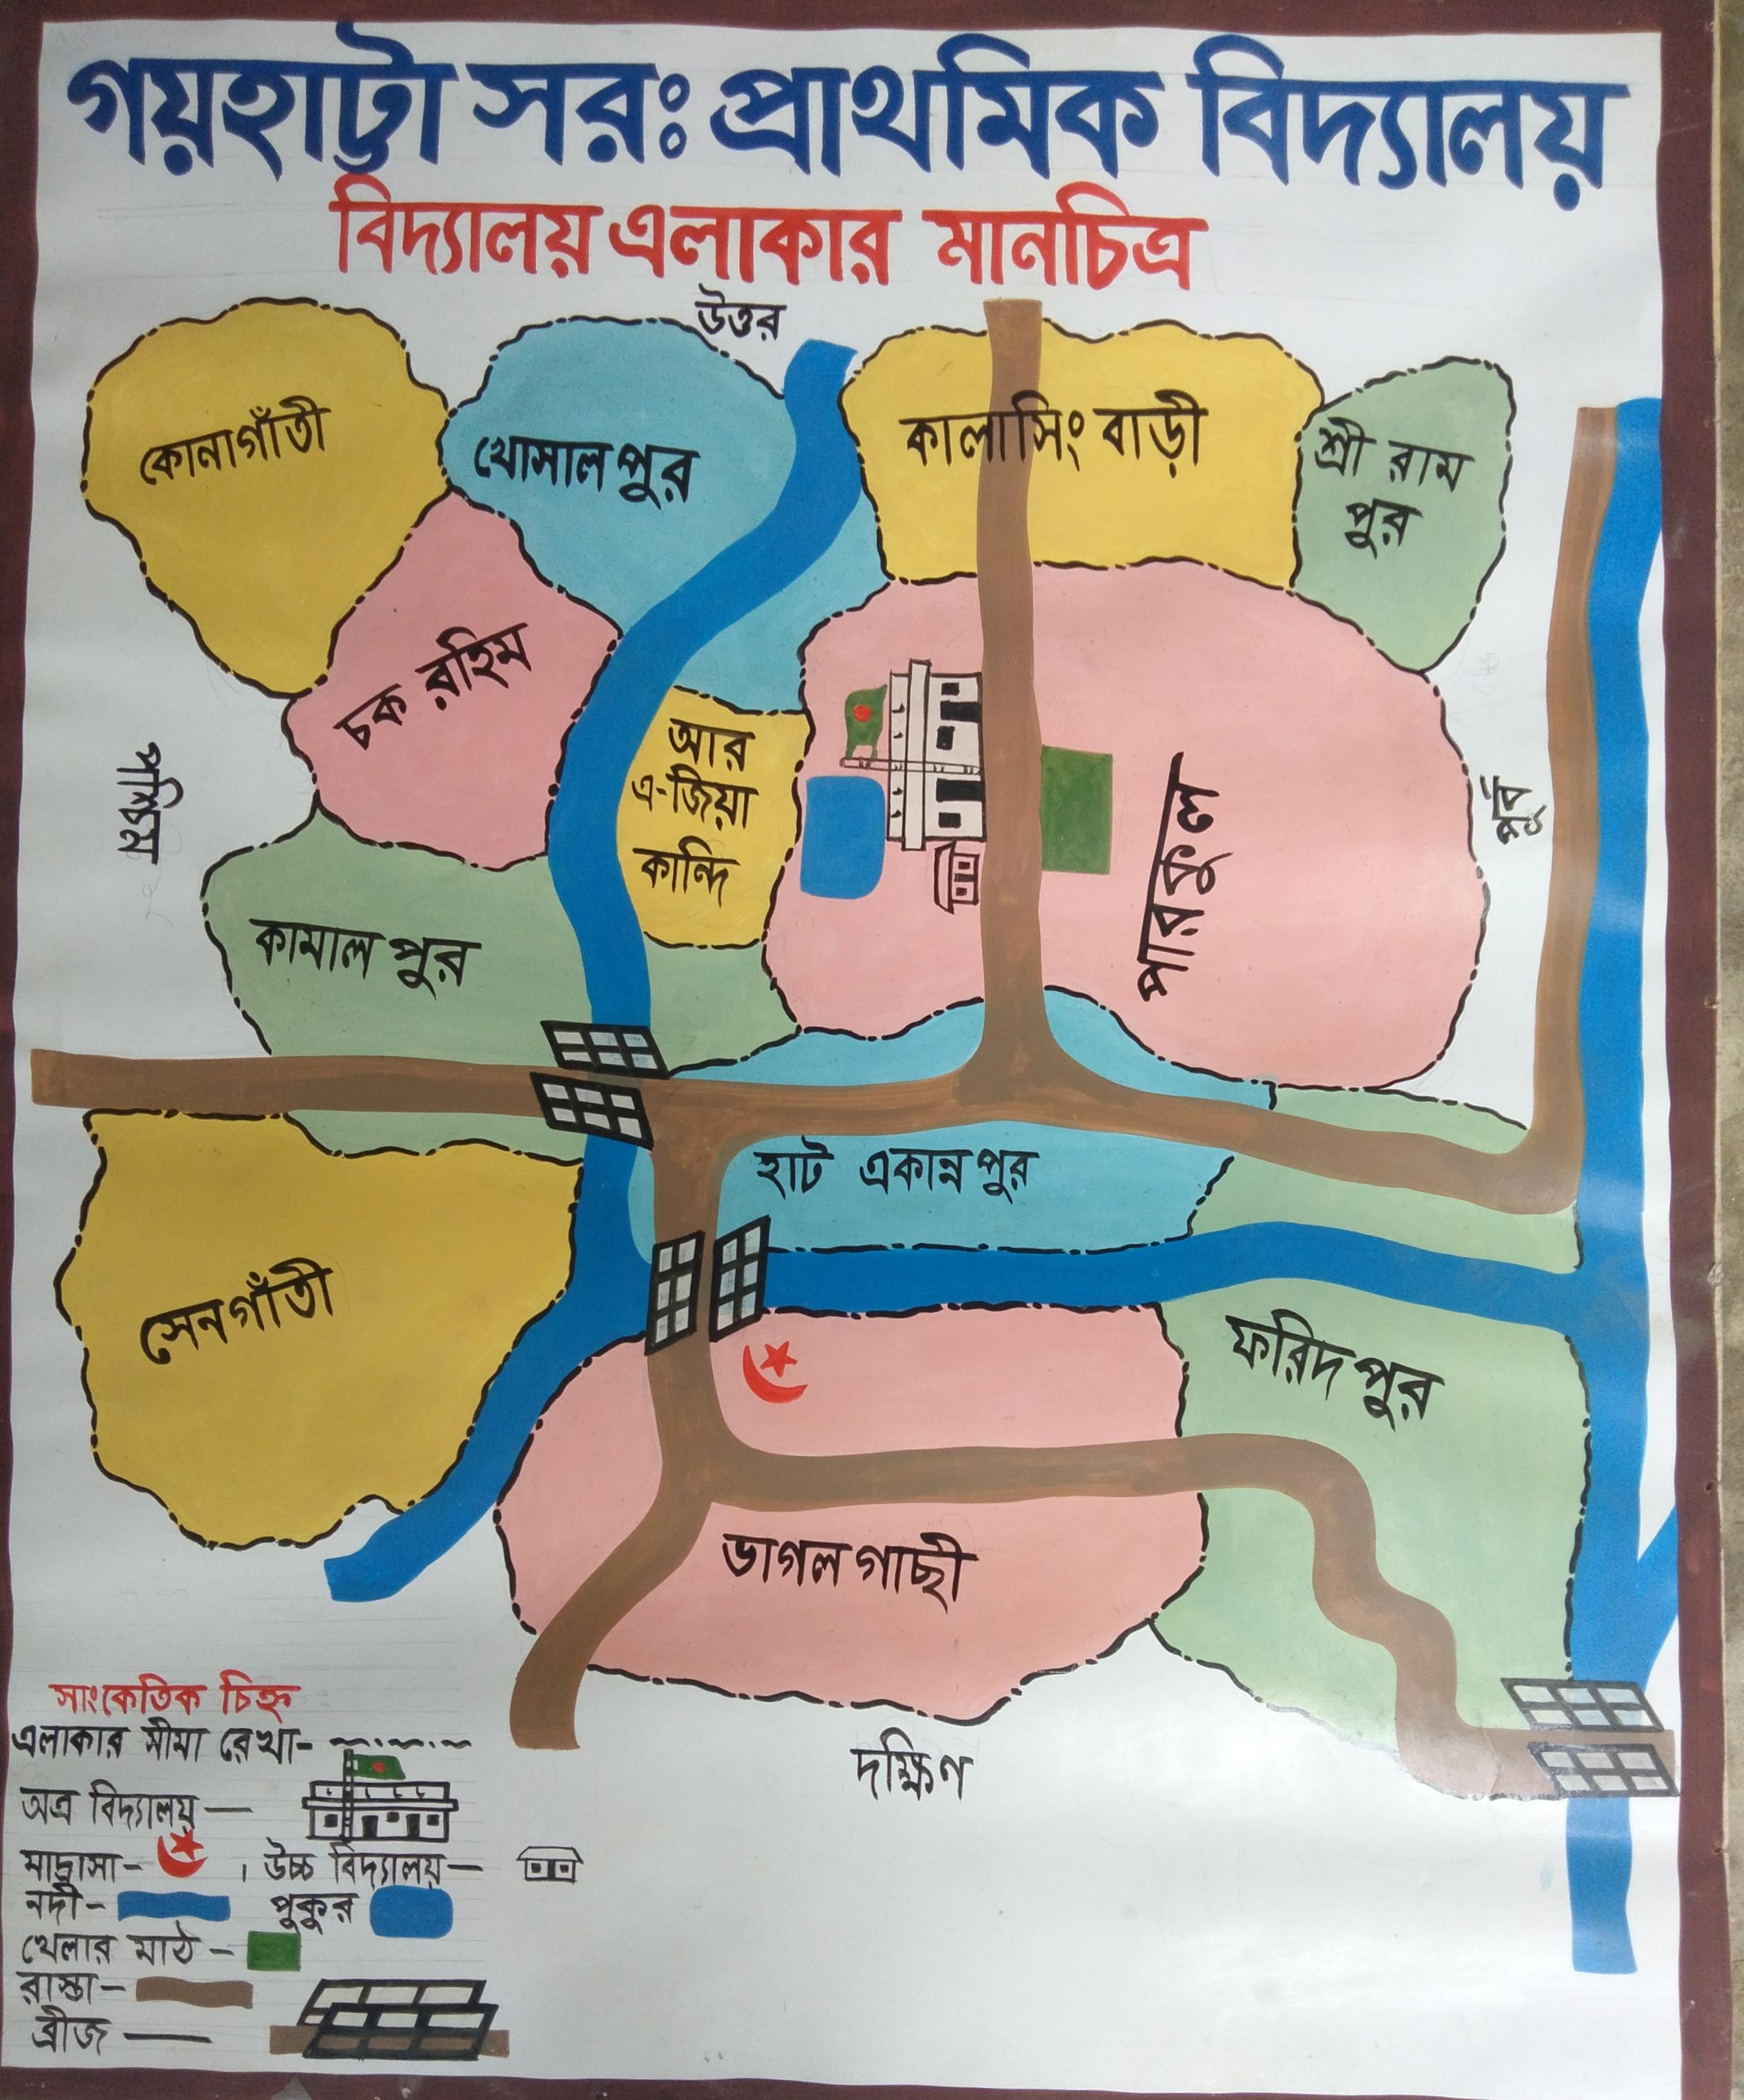 গয়হাট্টা সরঃ প্রাথমিক বিদ্যালয়
বিদ্যালয় এলাকার মানচিত্র
উত্তর
কোনাগাঁতী
খোসাল পুর
কালাসিং বাড়ী
শ্রী রাম
পুর
চক রহিম
আর
এ-জিয়া
কান্দি
পশ্চিম
পূর্ব
পারকুল
কামাল পুর
হাট একান্ন পুর
সেনগাঁতী
ফরিদ পুর
ডাগল গাছী
দক্ষিণ
সাংকেতিক চিহ্ন
এলাকার সীমা রেখা-
অত্র বিদ্যালয় —
মাদ্রাসা- , উচ্চ বিদ্যালয় —
নদী- পুকুর
খেলার মাঠ -
রাস্তা-
ব্রীজ —